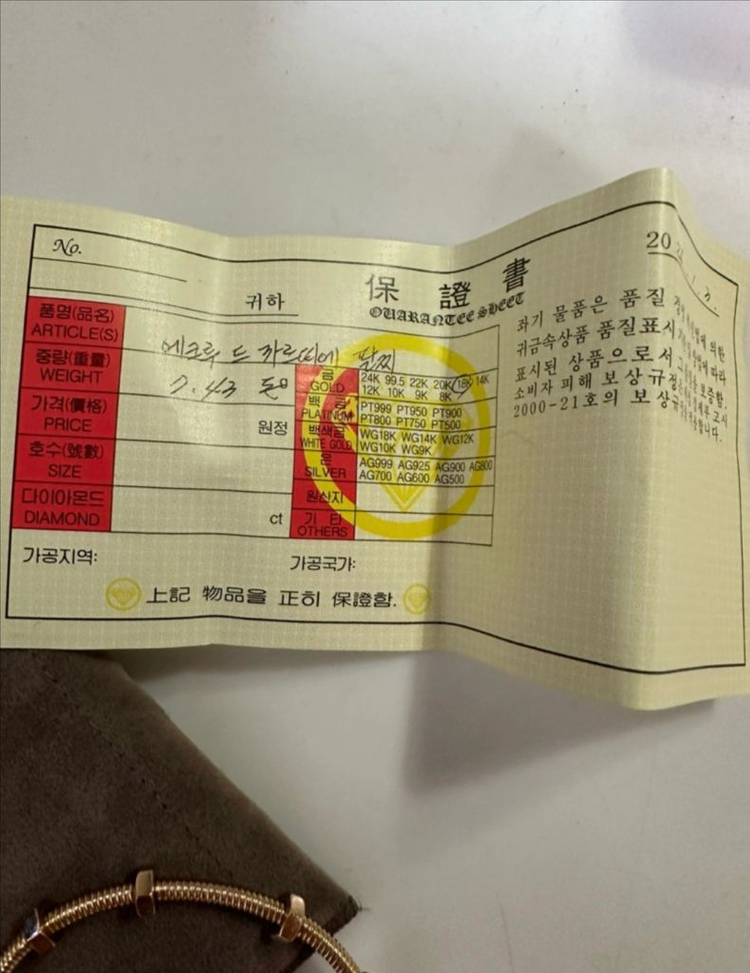 No.
20
귀하
保 證 書
QUARANTEE SHEET
품명(品名)
ARTICLE(S)
에크루 드 까르띠에 팔찌
중량(重量)
WEIGHT
7.43 돈
가격(價格)
PRICE
원정
호수(號數)
SIZE
다이아몬드
DIAMOND
ct
금
GOLD
24K 99.5 22K 20K 18K 14K
12K 10K 9K 8K
백 금
PLATINUM
PT999 PT950 PT900
PT800 PT750 PT500
백색금
WHITE GOLD
WG18K WG14K WG12K
WG10K WG9K
은
SILVER
AG999 AG925 AG900 AG800
AG700 AG600 AG500
원산지
기 타
OTHERS
가공지역:
가공국가:
上記 物品을 正히 保證함.
좌기 물품은 품질 의한
귀금속상품 품질표시 따라
표시된 상품으로서 보증함.
소비자 피해 보상규정 고시
2000-21호의 보상